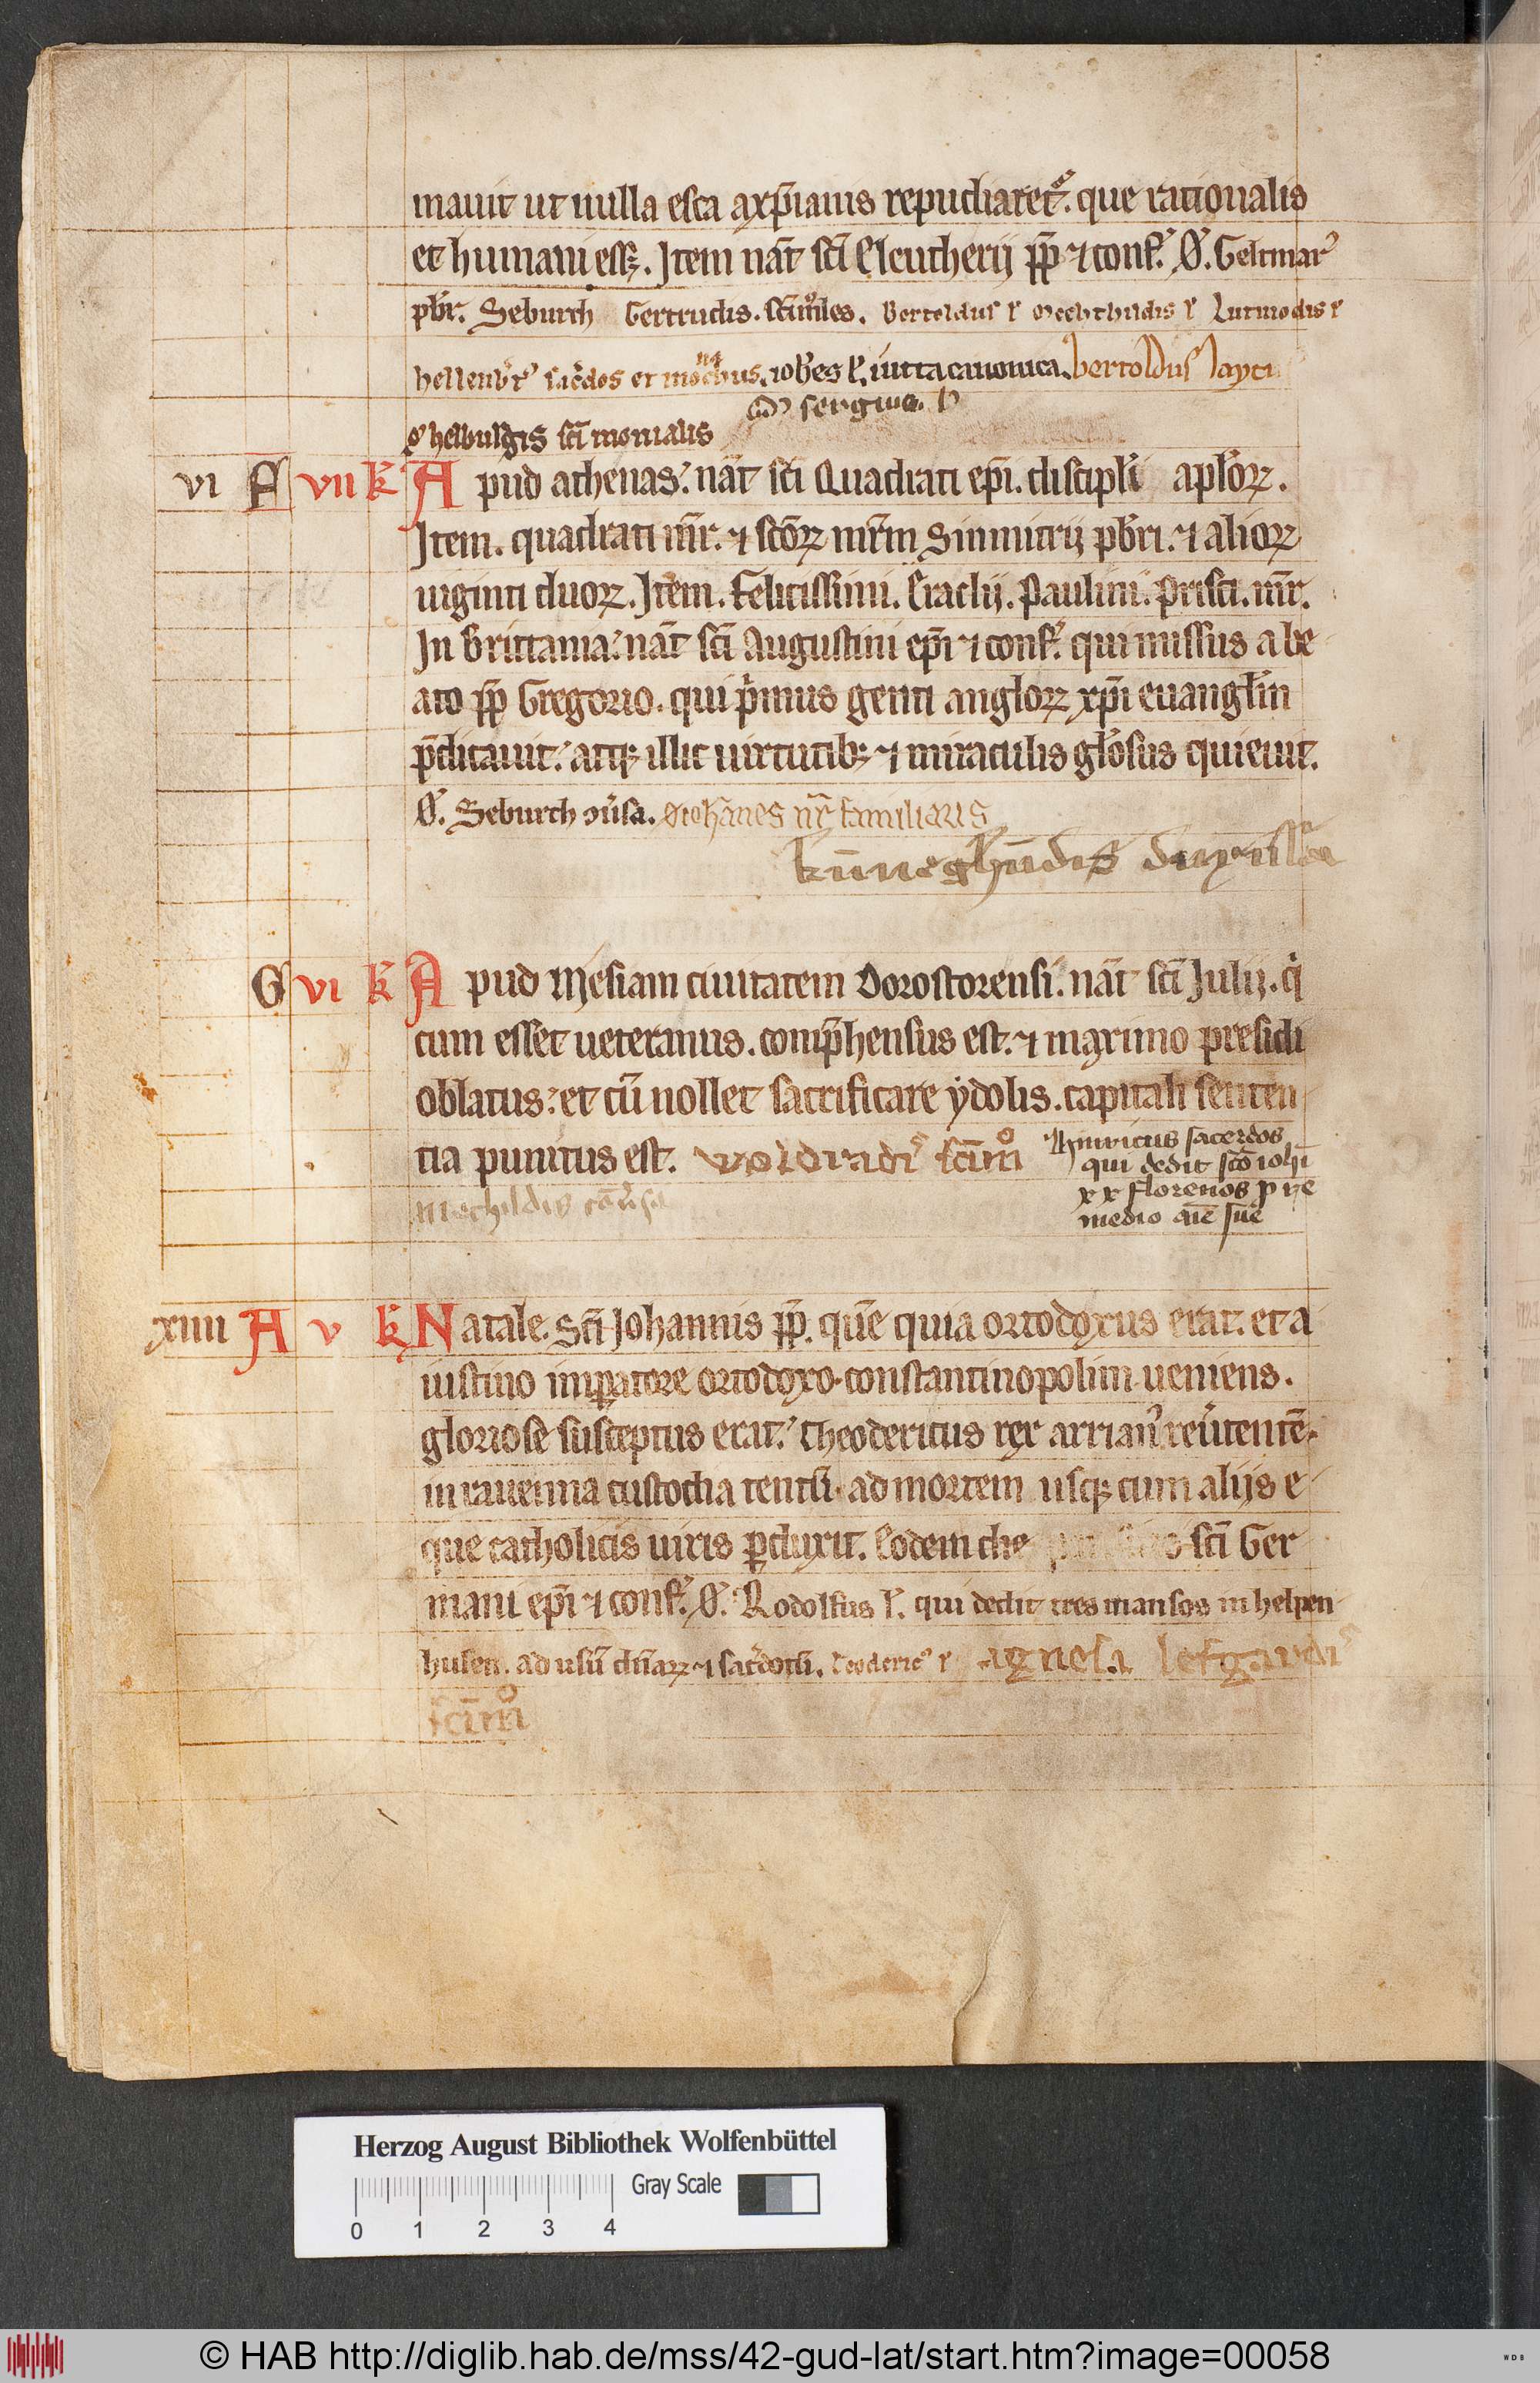 mauit ut nulla esca a xp̄ianis repudiaretᷣ. que rationalis
et humana esſꝫ. Item nat̄ sc̄i Eleutherij pp̄ ⁊ conf.ᷣ Ø. Geltmarᷣ
pb̄r. Seburch Gertrudis. Bertoldus lᷣ Mechthildis lᷣ Lutmodis lᷣ
sac̄dos et . ioh̄es lᷣ. iutta canonica. bertoldus layci
sergius.
ø helburgis sc̄i monialis
vi F vii k̄ Apud athenas.ᷣ nat̄ sc̄i Quadrati ep̄i. discipl̄i apl̄oꝝ.
Item. quadrati mr̄. ⁊ sc̄oꝝ mr̄m Simmitrij pb̄ri. ⁊ alioꝝ
uiginti duoꝝ. Item. Felicissimi. Eraclij. Paulini. Prisci. mr̄.
In Brittania.ᷣ nat̄ sc̄i Augustini ep̄i ⁊ conf.ᷣ qui missus a be
ato pp̄ Gregorio. qui pͥmus genti angloꝝ xp̄i euangl̄iu
p̄dicauit.ᷣ atqꝫ illic uirtutibꝫ ⁊ miraculis gl̄osus quieuit.
Ø. Seburch ꝯu̾sa. Ø Iohanes nr̄ familiaris
kūneghūdis ducissa
G vi k̄ Apud Mesiam ciuitatem Dorostorensi. nat̄ sc̄i Julij. qͥ
cum esset ueteranus. comp̄hensus est. ⁊ maximo presidi
oblatus.ᷣ et cū nollet sacrificare ẏdolis. capitali senten
tia punitus est. woldradis sc̄imo
hinricus sacerdos
qui dedit sc̄o ioh̄i
xx florenos p re
medio aīe sue
Mechildis cōu̾sa
xiiii A v k̄ Natale. Sc̄i Johannis pp̄. quē quia ortodoxus erat. et a
iustino imꝑatore ortodoxo. constantinopolim ueniens.
gloriose susceptus erat.ᷣ Theodericus rex arrianꝰ reu̾tentē.
in rauenna custodia tentū. ad mortem usqꝫ cum alijs e
que catholicis uiris ꝑduxit. Eodem die sc̄i Ger
mani ep̄i ⁊ conf.ᷣ Ø. Rodolfus lᷣ. qui dedit tres mansos in helpen
husen. ad usū dn̄aꝝ ⁊ sac̾dotū. Teodericꝰ lᷣ agnesa lefgardis
sc̄imo
Herzog August Bibliothek Wolfenbüttel
Gray Scale
0 1 2 3 4
© HAB http://diglib.hab.de/mss/42-gud-lat/start.htm?image=00058
WDB